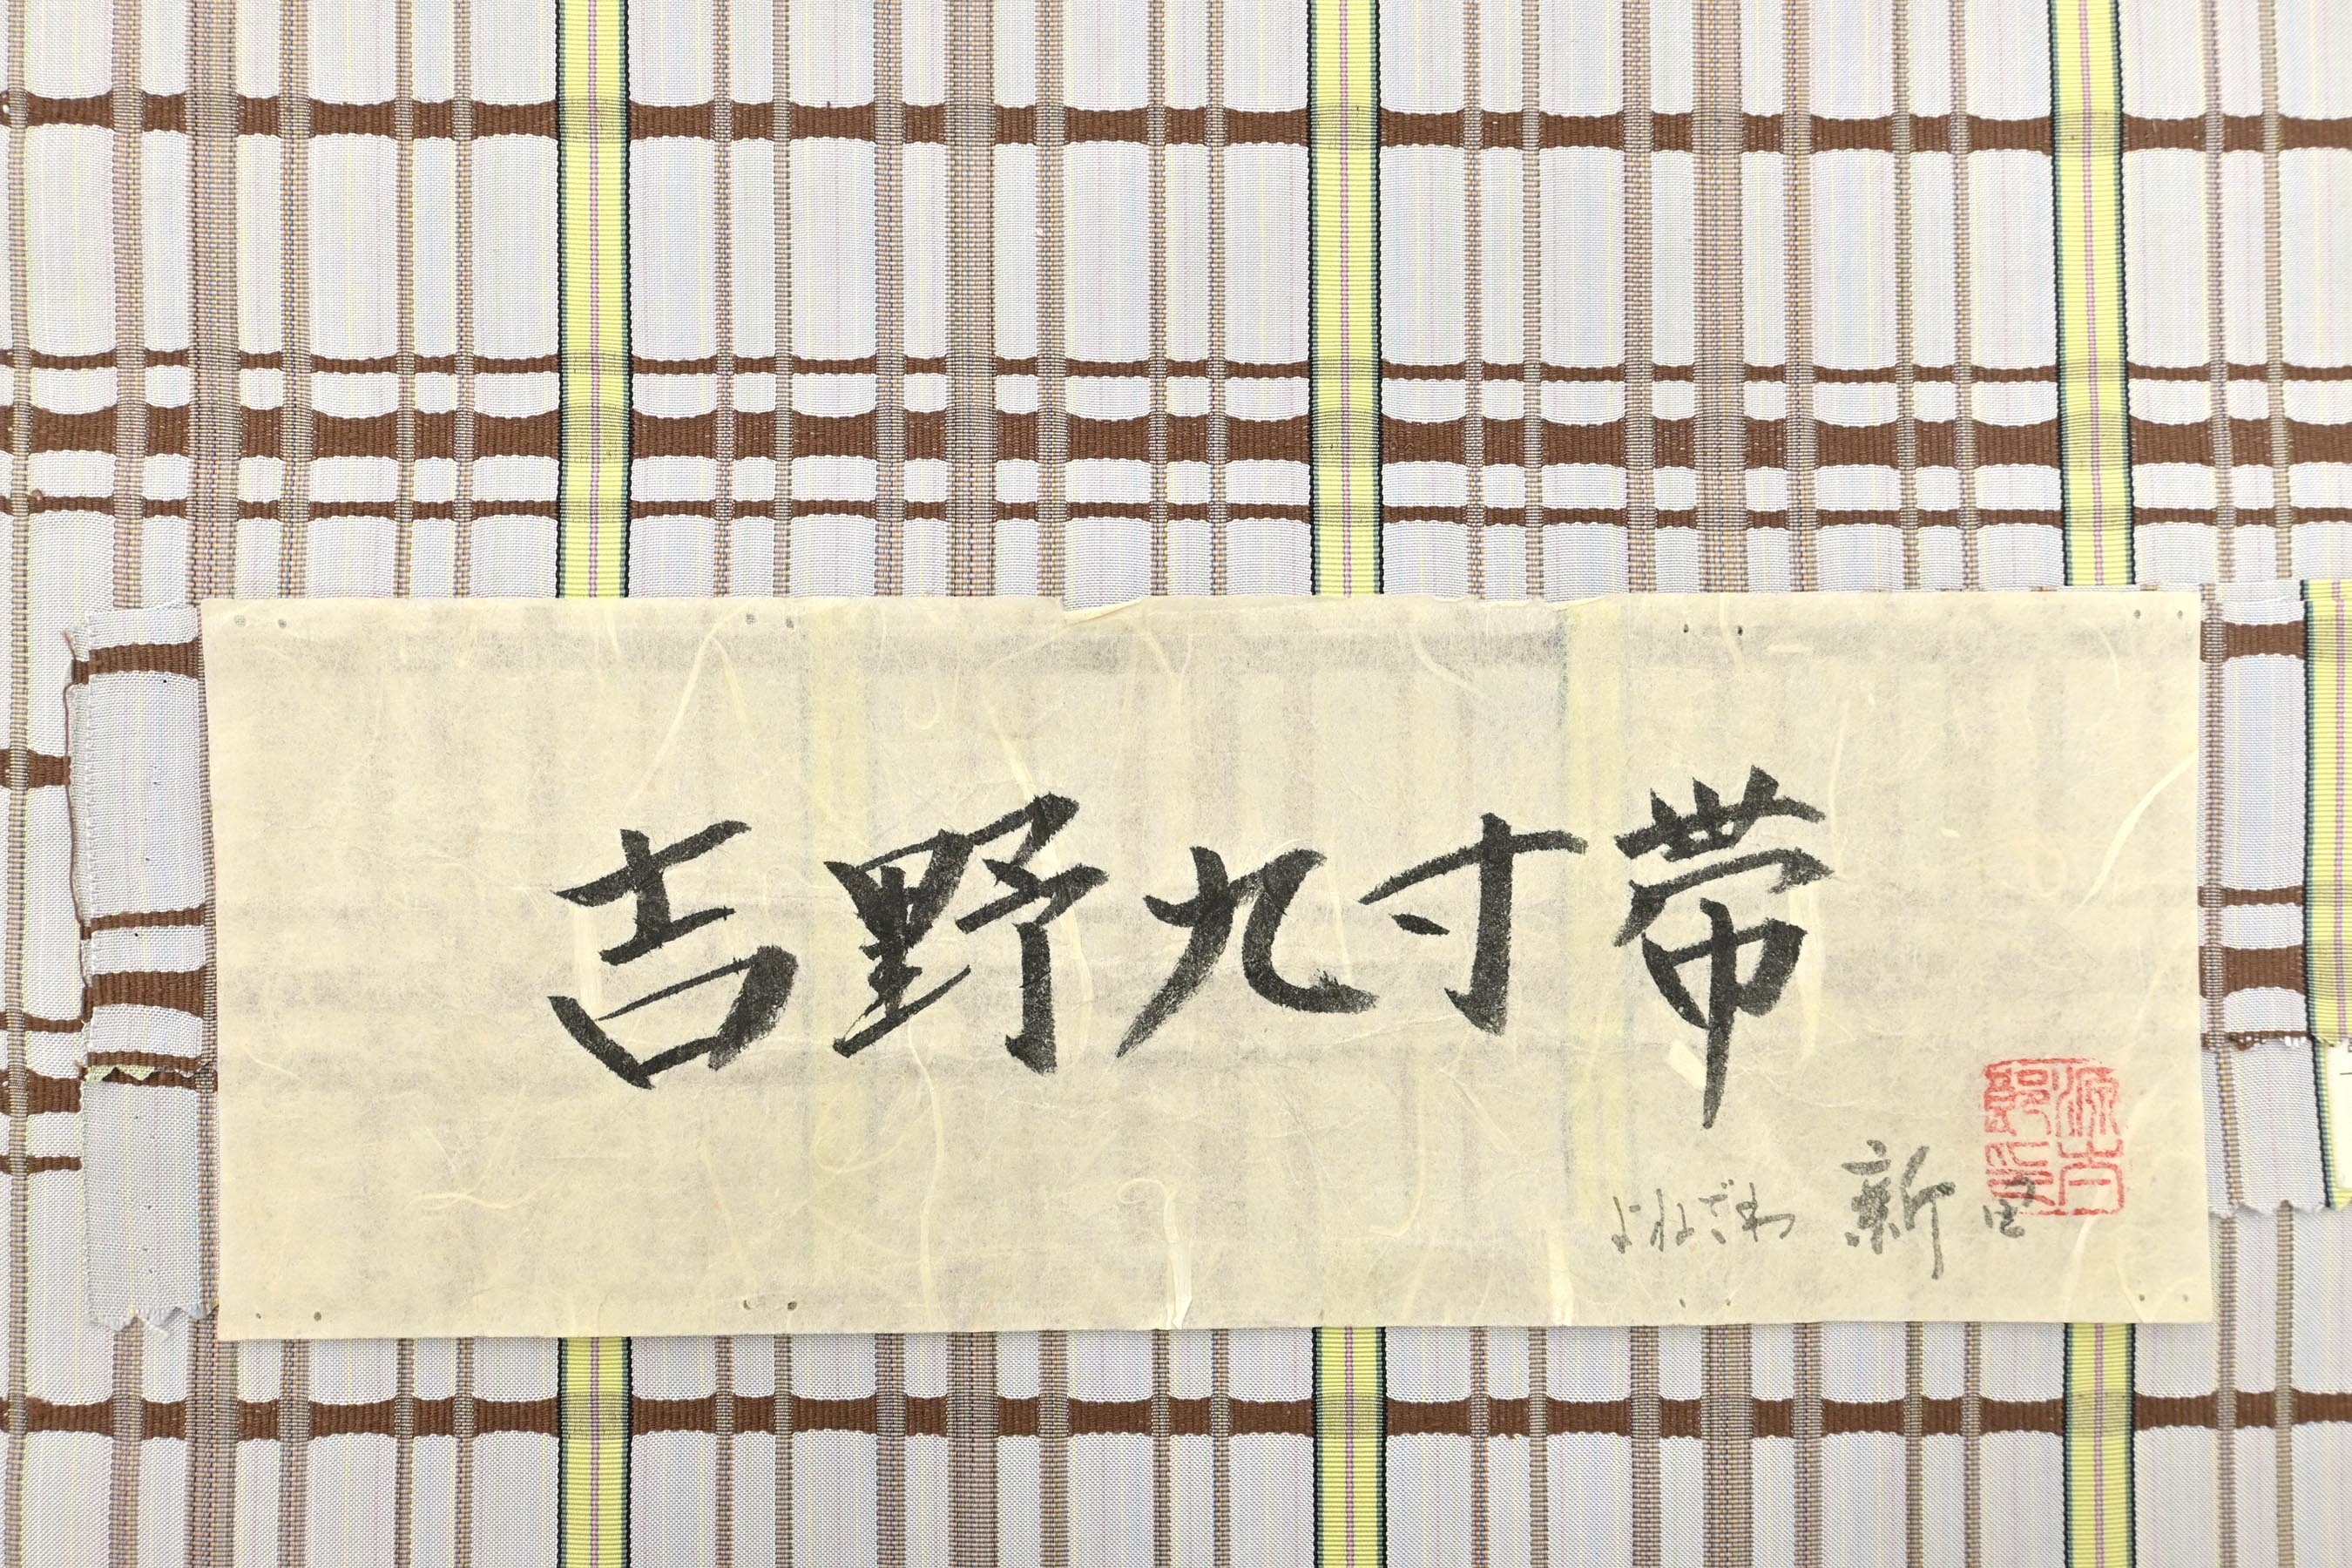 吉野九寸帯
よねざわ 新田
源右